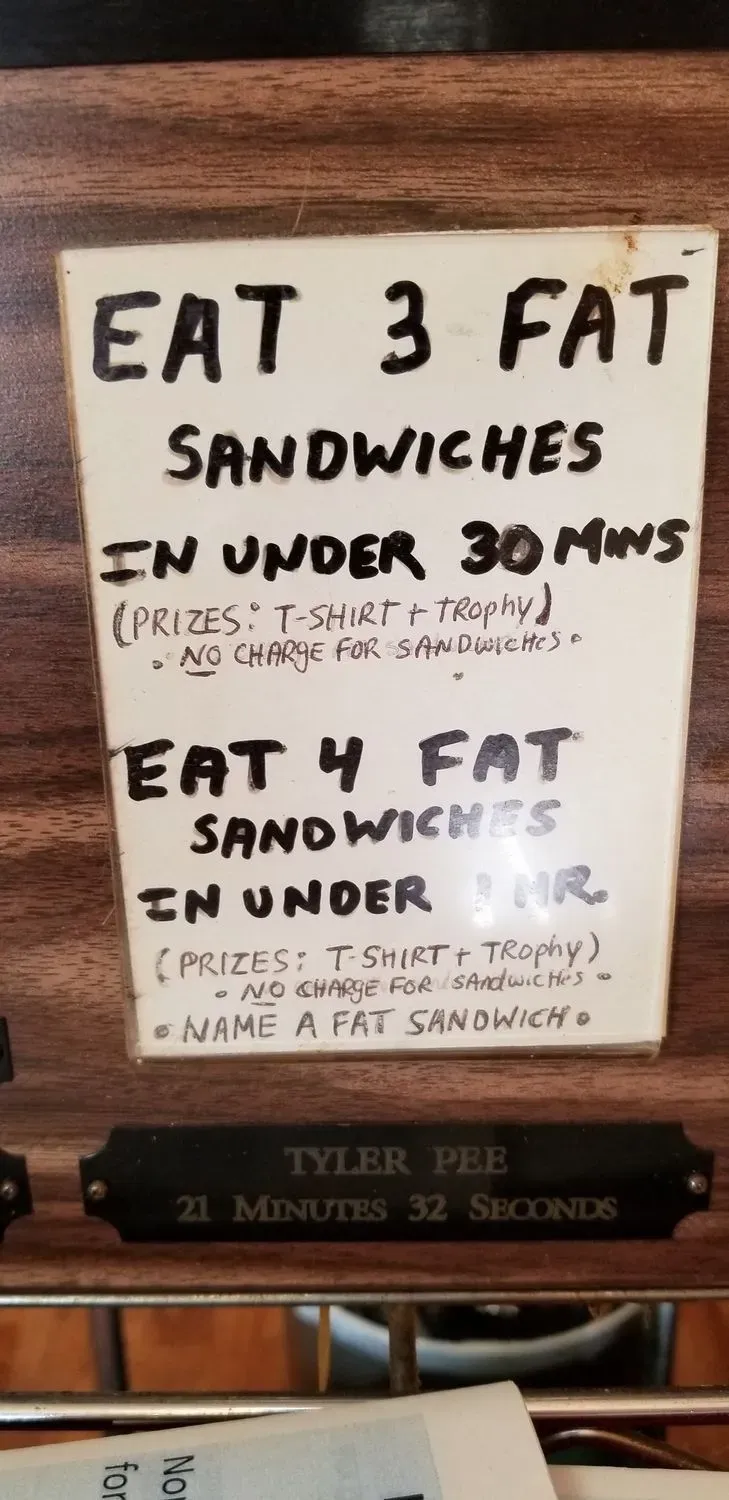 EAT 3 FAT
SANDWICHES
IN UNDER 30 MINS
(PRIZES: T-SHIRT + TROphy)
• NO CHARgE FOR SANDwicHes •
EAT 4 FAT
SANDWICHES
IN UNDER 1 HR.
(PRIZES: T-SHIRT + TROphy)
• NO CHARgE FOR SAndwicHes •
• NAME A FAT SANDWICH •
TYLER PEE
21 MINUTES 32 SECONDS